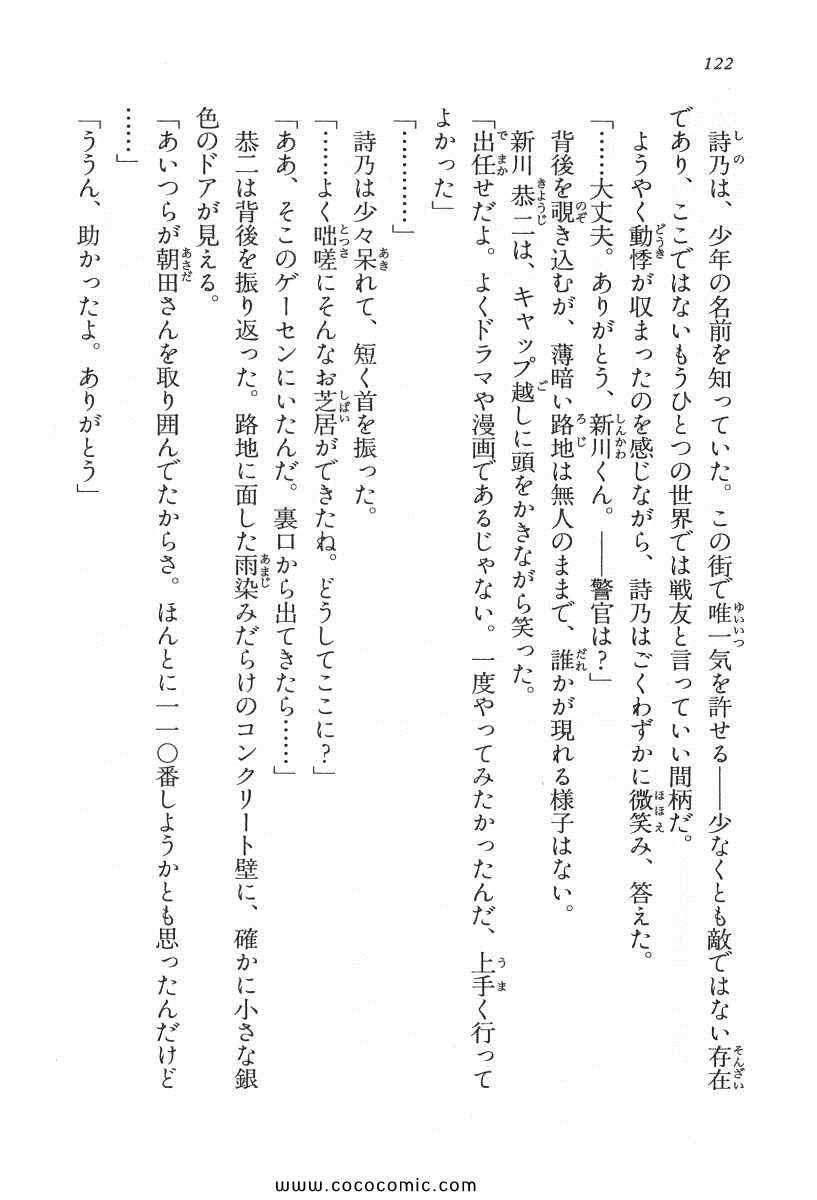 122
詩乃は、少年の名前を知っていた。この街で唯一気を許せる——少なくとも敵ではない存在
であり、ここではないもうひとつの世界では戦友と言っていい間柄だ。
ようやく動悸が収まったのを感じながら、詩乃はごくわずかに微笑み、答えた。
「……大丈夫。ありがとう、新川くん。——警官は？」
背後を覗き込むが、薄暗い路地は無人のままで、誰かが現れる様子はない。
新川恭二は、キャップ越しに頭をかきながら笑った。
「出任せだよ。よくドラマや漫画であるじゃない。一度やってみたかったんだ、上手く行って
よかった」
「…………」
詩乃は少々呆れて、短く首を振った。
「……よく咄嗟にそんなお芝居ができたね。どうしてここに？」
「ああ、そこのゲーセンにいたんだ。裏口から出てきたら……」
恭二は背後を振り返った。路地に面した雨染みだらけのコンクリート壁に、確かに小さな銀
色のドアが見える。
「あいつらが朝田さんを取り囲んでたからさ。ほんとに一一〇番しようかとも思ったんだけど
……」
「ううん、助かったよ。ありがとう」
www.cococomic.com